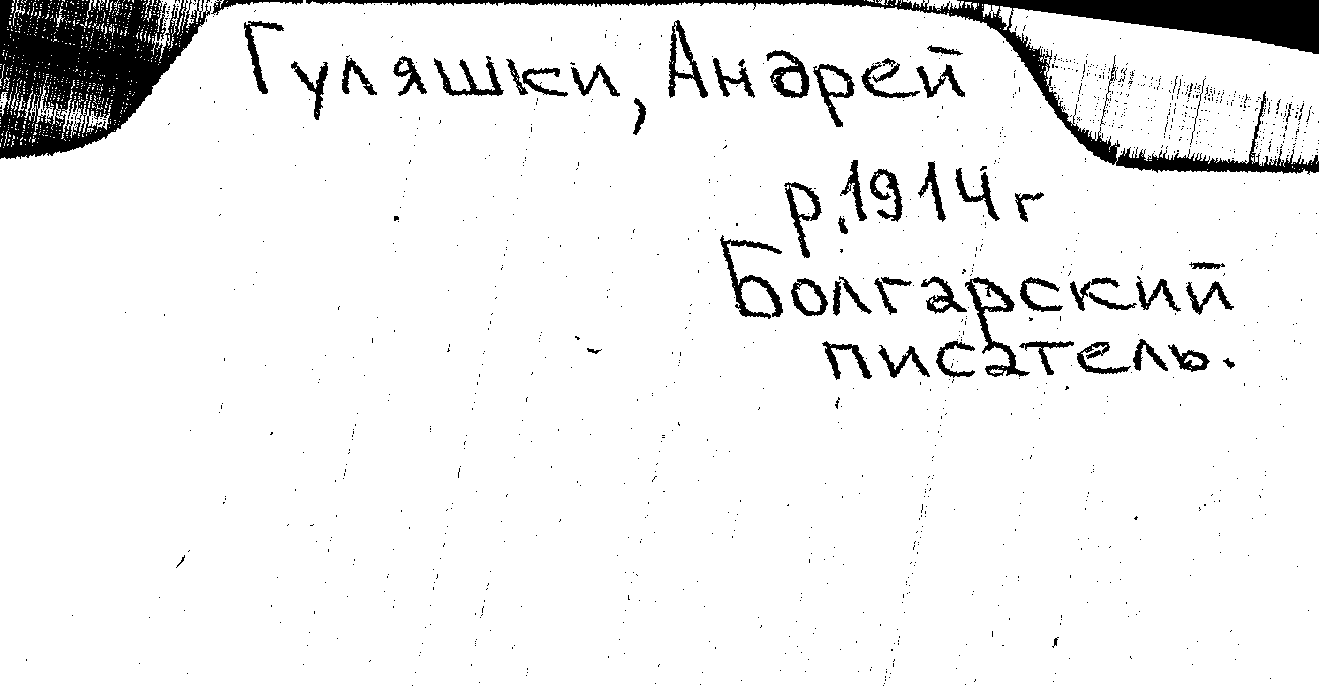 Гуляшки, Андрей
р.1914 г
Болгарский
писатель.